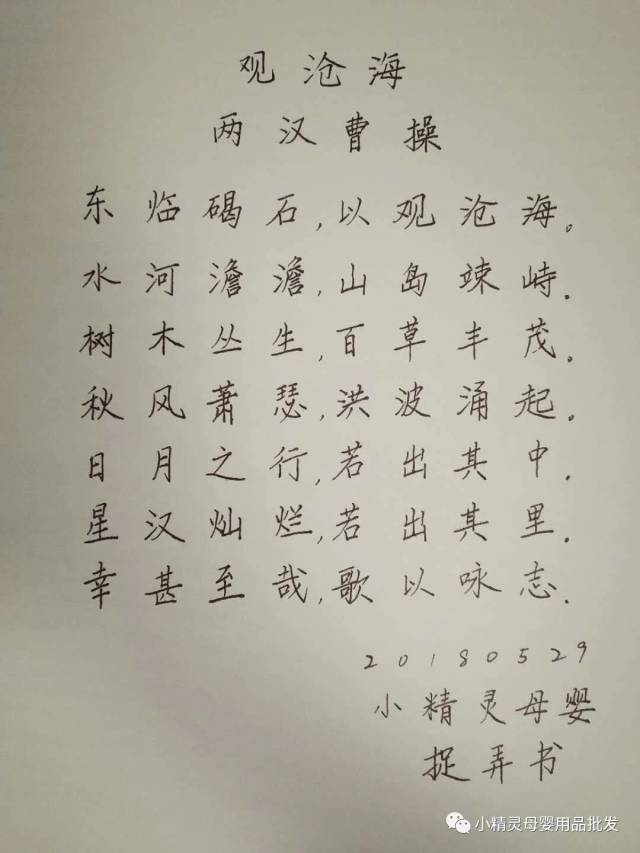 观沧海
两汉曹操
东临碣石,以观沧海。
水河澹澹,山岛竦峙.
树木丛生,百草丰茂。
秋风萧瑟,洪波涌起。
日月之行,若出其中.
星汉灿烂,若出其里.
幸甚至哉,歌以咏志.
20180529
小精灵母婴
捉弄书
小精灵母婴用品批发